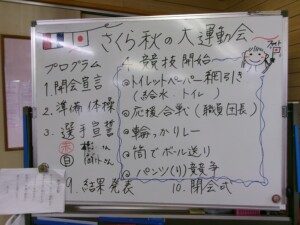 さくら秋の大運動会
プログラム
1. 開会宣言
2. 準備体操
3. 選手宣誓
赤
白
競技開始
トイレットペーパー綱引き
(給水、トイレ)
応援合戦(職員団長)
輪っかリレー
筒でボール送り
パンツ(り)競争
9. 結果発表
10. 閉会式